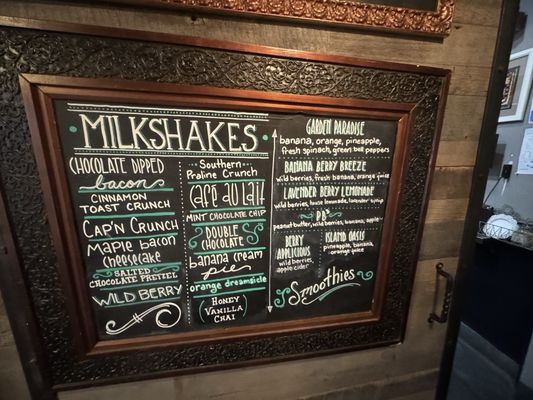 MILKSHAKES
CHOCOLATE DIPPED
bacon
CINNAMON
TOAST CRUNCH
CAP'N CRUNCH
Maple bacon
cheesecake
SALTED
CHOCOLATE PRETZEL
WILD BERRY
Southern
PRALINE CRUNCH
CAFE AU LAIT
MINT CHOCOLATE CHIP
DOUBLE
CHOCOLATE
banana cream
pie
orange dreamsicle
HONEY
VANILLA
CHAI
GARDEN PARADISE
banana, orange, pineapple,
fresh spinach, green bell peppers
BANANA BERRY BREEZE
wild berries, fresh banana, orange juice
LAVENDER BERRY LEMONADE
wild berries, house lemonade, lavender
PB²
peanut butter, wild berries, banana, apple
BERRY
APPLICIOUS
wild berries,
apple cider
ISLAND OASIS
pineapple, banana,
orange
Smoothies